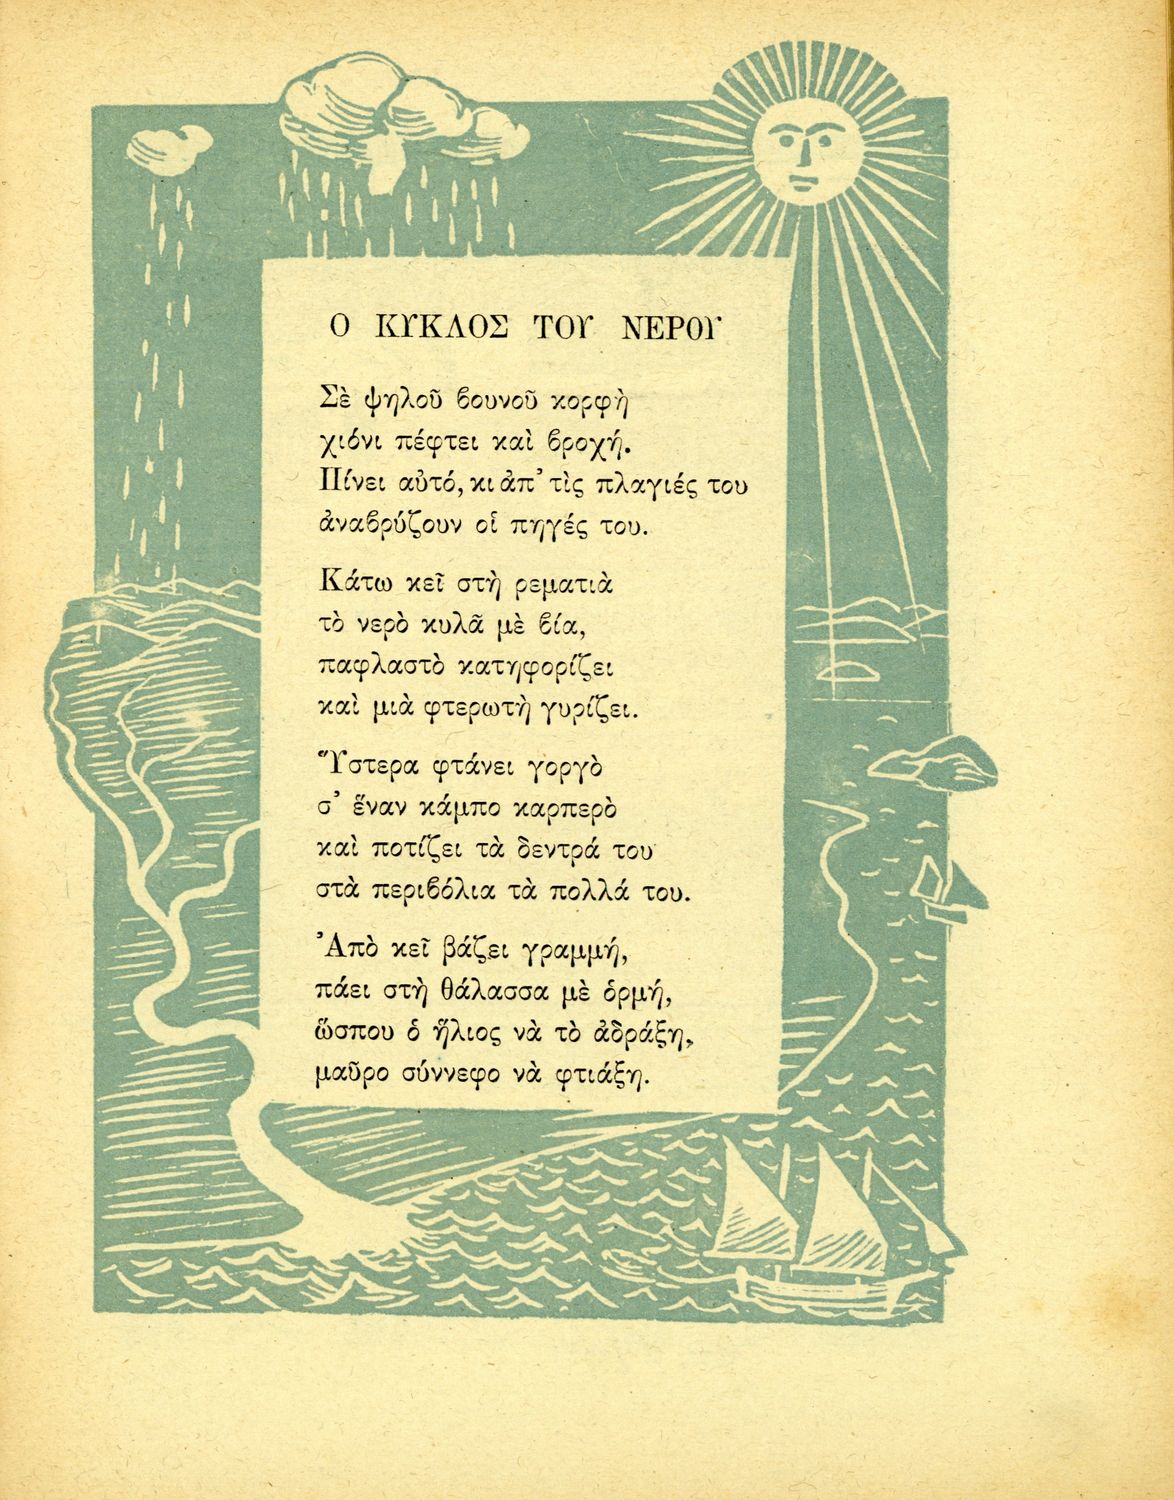 Ο ΚΥΚΛΟΣ ΤΟΥ ΝΕΡΟΥ
Σὲ ψηλοῦ βουνοῦ κορφὴ
χιόνι πέφτει καὶ βροχή.
Πίνει αὐτό, κι ἀπ’ τὶς πλαγιές του
ἀναβρύζουν οἱ πηγές του.
Κάτω κεῖ στὴ ρεματιὰ
τὸ νερὸ κυλᾶ μὲ βία,
παφλαστὸ κατηφορίζει
καὶ μιὰ φτερωτὴ γυρίζει.
Ὕστερα φτάνει γοργὸ
σ’ ἕναν κάμπο καρπερὸ
καὶ ποτίζει τὰ δεντρά του
στὰ περιβόλια τὰ πολλά του.
Ἀπὸ κεῖ βάζει γραμμή,
πάει στὴ θάλασσα μὲ ὁρμή,
ὥσπου ὁ ἥλιος νὰ τὸ ἀδράξη,
μαῦρο σύννεφο νὰ φτιάξη.